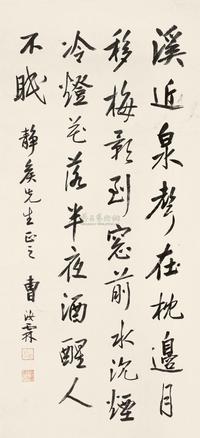 溪近泉声在枕邊月
移梅影到窓前水沉煙
冷燈花落半夜酒醒人
不眠
静矦先生正之 曹汝霖